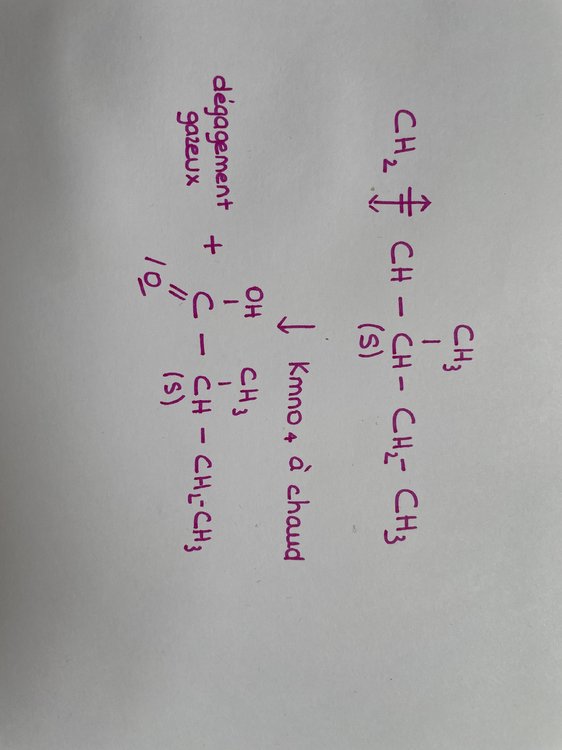 CH3
CH2 = CH - CH - CH2 - CH3
(S)
↓ Kmno4 à chaud
OH CH3
dégagement gazeux + C - CH - CH2-CH3
O (S)